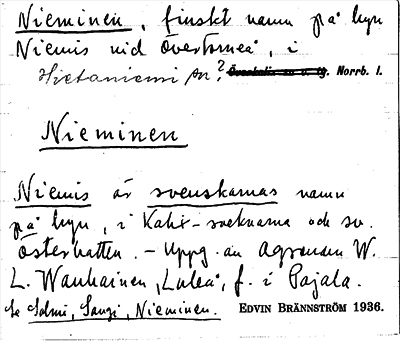 Nieminen, finskt namn på byn
Niemis vid Övertorneå, i
Hietaniemi sn? Överkalix sn o. tg. Norrb. l.
Nieminen
Niemis är svenskarnas namn
på byn, i Kalix-socknarna och sv.
Österbotten. - Uppg. av Agronomen W.
L. Wanhainen, Luleå, f. i Pajala.
Se Salmi, Sangi, Nieminen. EDVIN BRÄNNSTRÖM 1936.